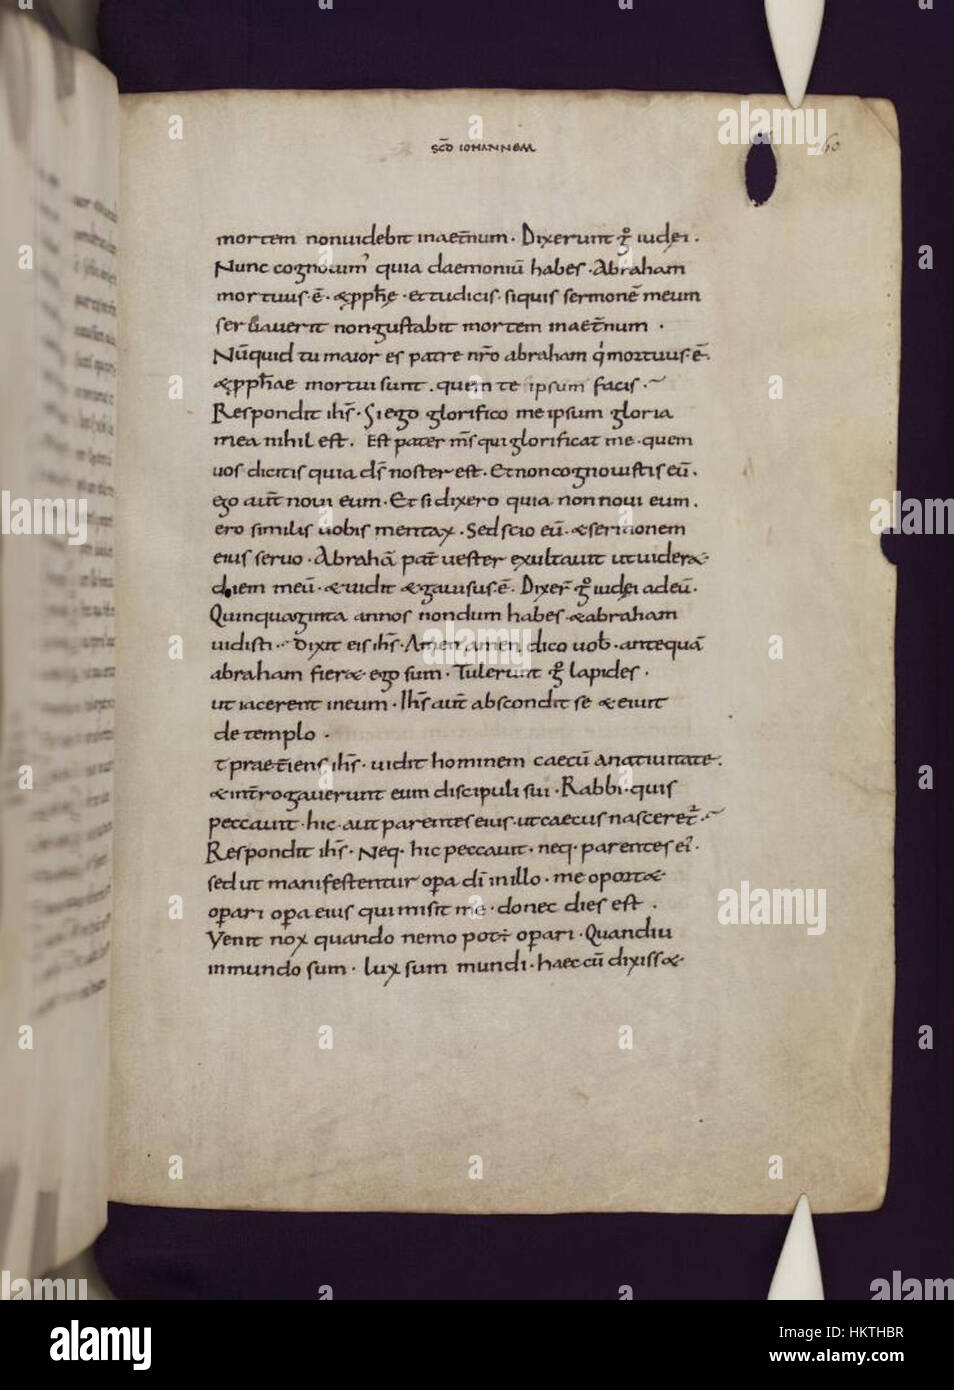 SCD IOHANNEM
60
mortem nonuidebit inaet̄num · Dixerunt g̊ iudęi ·
Nunc cognouim᾽ quia daemoniū habes · Abraham
mortuus · ē · &pph̄ę · ettudicis · siquis sermonē meum
seruauerit nongustabit mortem inaet̄num ·
Nūquid tu maior es patre nr̄o abraham q᾽ mortuus · ē ·
&pph̄ae mortui sunt . quem te ipsum facis ·~
Respondit ih̄s · Siego glorifico me ipsum gloria
mea nihil est . Est pater m̄s qui glorificat me · quem
uos dicitis quia ds̄ noster est · Et non cognouistis eū .
ego aut̄ noui eum · Et si dixero quia non noui eum .
ero similis uobis mentax · Sed scio eū · &sermonem
eius seruo · Abrahā pat̄ uester exultauit ut uider&
diem meū · &uidit &gauisus · ē · Dixer̄ g̊ iudęi adeū ·
Quinquaginta annos nondum habes · &abraham
uidisti ·~ Dixit eis ih̄s · Amen amen dico uob̄ · antequā
abraham fier& ego sum · Tulerunt g̊ lapides ·
ut iacerent in eum · Ih̄s aut̄ abscondit se & exiuit
de templo ·
t praet̄iens ih̄s · uidit hominem caecū anatiuitate ·
&int̄rogauerunt eum discipuli sui · Rabbi · quis
peccauit · hic · aut parentes eius · ut caecus nasceret̄ ·~
Respondit ih̄s · Neq· hic peccauit · neq· parentes ei᾽ ·
sed ut manifestentur op̄a dī in illo · me oport&
op̄ari op̄a eius qui misit me · donec dies est .
Venit nox quando nemo potē op̄ari · Quandiu
inmundo sum · lux sum mundi · haec cū dixiss&
alamy
Image ID: HKTHBR
www.alamy.com